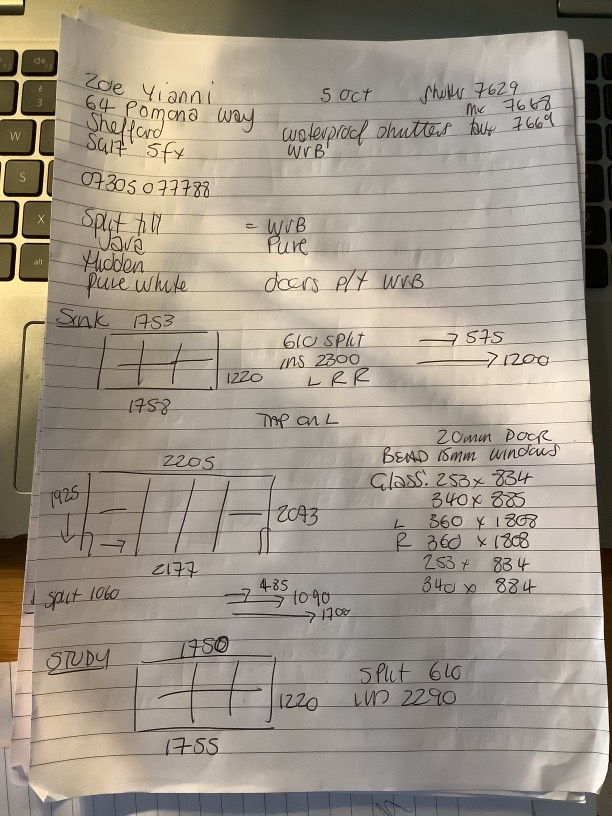 Zoe Yianni 5 Oct Shutter 7629
64 Pomona Way mk 7668
Shefford waterproof shutters 7669
SG17 5FX WVB
07305 077788
Split tilt = WVB
Java Pure
Hidden
Pure white doors P/t WVB
Sink 1753
610 split → 575
ins 2300 → 1200
1220 L R R
1758
TAP on L
20mm DOOR
2205 BEAD 15mm windows
Glass: 253 x 834
1925 340 x 885
2093 L 360 x 1808
R 360 x 1808
2177 253 x 834
340 x 884
split 1060 → 485
→ 1090
→ 1700
STUDY 1750
split 610
1220 2290
1755